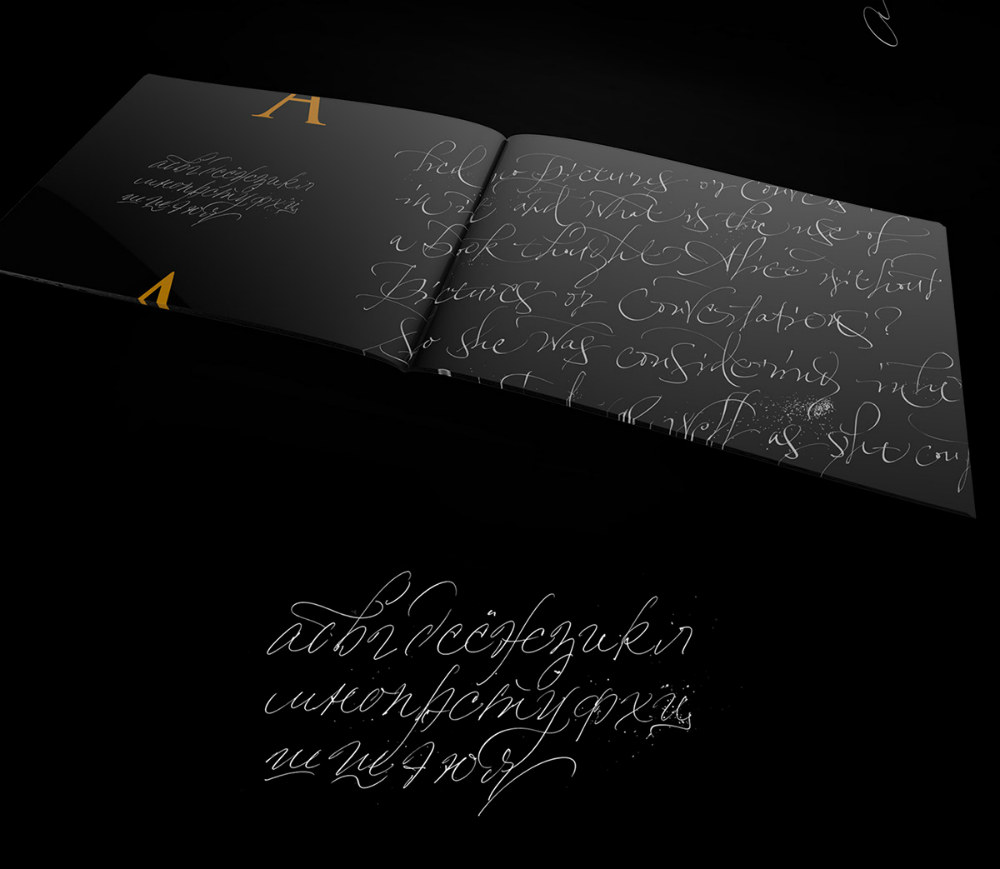 A
абвгдеёжзикл
мнопрстуфхц
шщэюя
A
had no Pictures or
in it and what is the use of
a Book thought Alice without
Pictures or Conversations?
So she was considering in he
well as she cou
a
абвгдеёжзикл
мнопрстуфхц
шщэюя